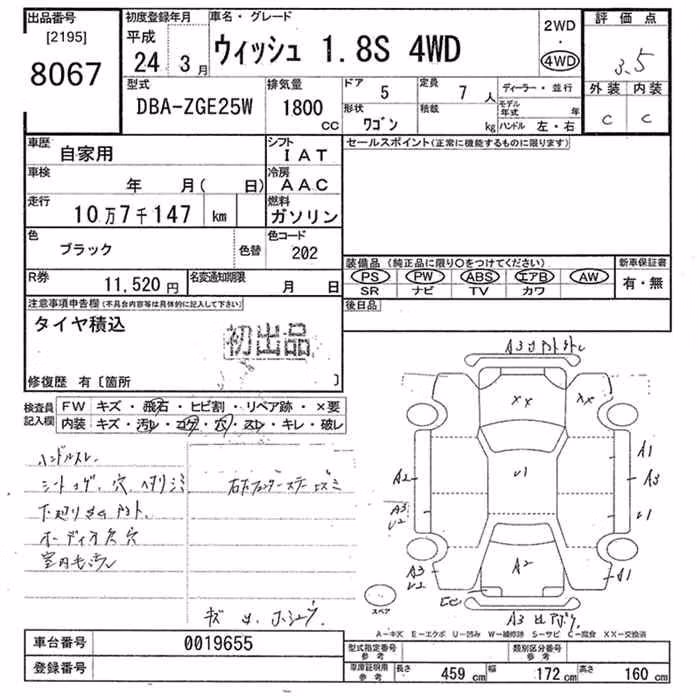 出品番号 [2195] 8067
初度登録年月 平成 24 3月
車名・グレード ウィッシュ 1.8S 4WD
2WD ・ 4WD
評価点 3.5
外装 内装
C C
型式 DBA-ZGE25W
排気量 1800 CC
ドア 5
定員 7 人
ディーラー・並行
形状 ワゴン
積載 kg
モデル年式 年
ハンドル 左・右
車歴 自家用
シフト IAT
セールスポイント(正常に機能するものに限ります)
車検 年 月( 日)
冷房 AAC
走行 10万7千147 km
燃料 ガソリン
色 ブラック 色替
色コード 202
装備品(純正品に限り○をつけてください)
新車保証書
PS PW ABS エアB AW
SR ナビ TV カワ
有・無
R券 11,520円
名変通知期限 月 日
後日品
注意事項申告欄(不具合内容等は具体的に記入して下さい)
タイヤ積込
初出品
修復歴 有〔箇所 〕
検査員記入欄
FW キズ・飛石・ヒビ割・リペア跡・×要
内装 キズ・汚レ・コゲ・穴・スレ・キレ・破レ
ハンドルスレ
オーディオ穴
A3
XX XX
A1
A2 U1 A3
A3 U2 U1
A3 U2 A2 A1
スペア
A3
A-キズ E-エクボ U-凹み W-補修跡 S-サビ C-腐食 XX-交換済
車台番号 0019655
登録番号
型式指定番号 参考
類別区分番号 参考
車庫証明用 参考 長さ 459 cm 幅 172 cm 高さ 160 cm